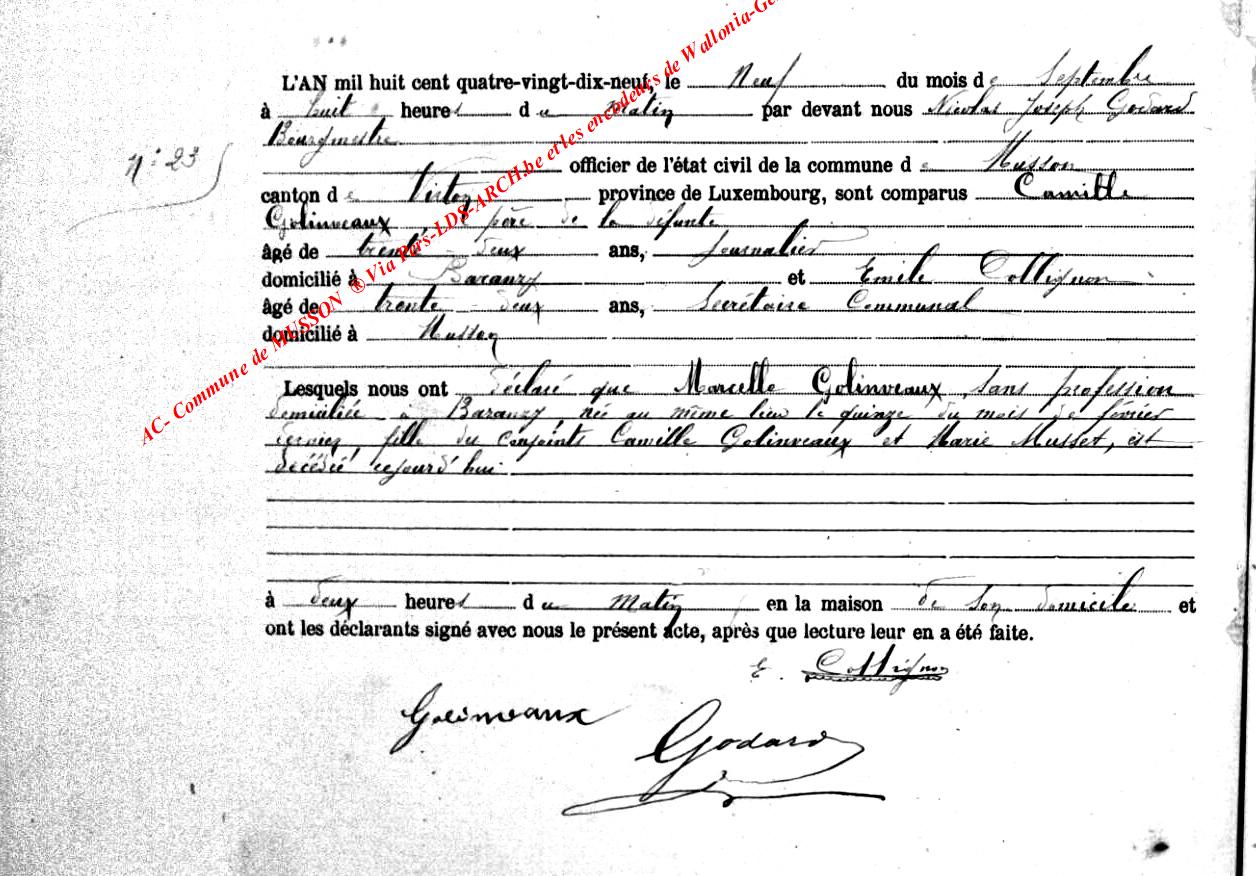 L'AN mil huit cent quatre-vingt-dix-neuf, le Neuf du mois de Septembre
à huit heures du matin par devant nous Nicolas Joseph Godard
Bourgmestre
N: 23
officier de l'état civil de la commune de Musson
canton de Virton province de Luxembourg, sont comparus Camille
Golinveaux père de la défunte
âgé de trente deux ans, journalier
domicilié à Baranzy et Emile Collignon
âgé de trente deux ans, Secrétaire Communal
domicilié à Musson
Lesquels nous ont déclaré que Marcelle Golinveaux, sans profession
domiciliée à Baranzy, née au même lieu le quinze du mois de février
dernier, fille des conjoints Camille Golinveaux et Marie Musset, est
décédée cejourd'hui
à deux heures du matin en la maison de son domicile et
ont les déclarants signé avec nous le présent acte, après que lecture leur en a été faite.
E. Collignon
Golinveaux
Godard
AC- Commune de MUSSON ® Via Pers-LDS-ARCH.be et les encodeurs de Wallonia-Ge